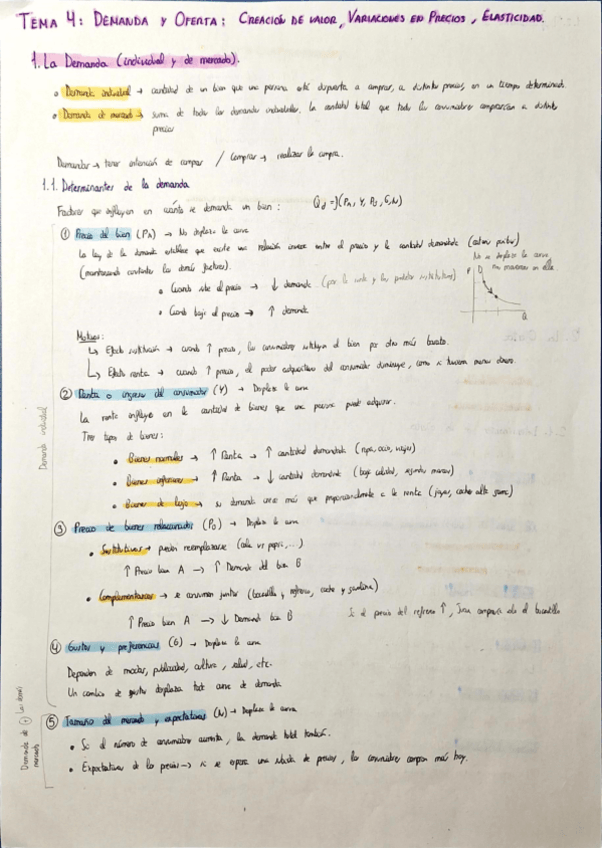 TEMA 4: DEMANDA Y OFERTA: CREACIÓN DE VALOR, VARIACIONES EN PRECIOS, ELASTICIDAD.
1. La Demanda (individual y de mercado).
• Demanda individual → cantidad de un bien que una persona está dispuesta a comprar, a distintos precios, en un tiempo determinado.
• Demanda de mercado → suma de todas las demandas individuales, la cantidad total que todos los consumidores comprarían a distintos
precios
Demandar → tener intención de comprar / Comprar → realizar la compra.
1.1. Determinantes de la demanda
Factores que influyen en cuánto se demanda un bien: Qd = f(PA, Y, PB, G, N)
① Precio del bien (PA) → No desplaza la curva
La ley de la demanda establece que existe una relación inversa entre el precio y la cantidad demandada (ceteris paribus)
(manteniendo constantes los demás factores).
No se desplaza la curva
nos movemos en ella
• Cuando sube el precio → ↓ demanda (por la renta y los productos sustitutivos)
• Cuando baja el precio → ↑ demanda
P D
Q
Motivos:
↳ Efecto sustitución → cuando ↑ precio, los consumidores sustituyen el bien por otros más baratos.
↳ Efecto renta → cuando ↑ precio, el poder adquisitivo del consumidor disminuye, como si tuvieran menos dinero.
② Renta o ingreso del consumidor (Y) → Desplaza la curva
La renta influye en la cantidad de bienes que una persona puede adquirir.
Tres tipos de bienes:
• Bienes normales → ↑ Renta → ↑ cantidad demandada (ropa, ocio, viajes)
• Bienes inferiores → ↑ Renta → ↓ cantidad demandada (baja calidad, segunda mano)
• Bienes de lujo → su demanda crece más que proporcionalmente a la renta (joyas, coches alta gama)
③ Precio de bienes relacionados (PB) → Desplaza la curva
• Sustitutivos → pueden reemplazarse (cola vs pepsi,...)
↑ Precio bien A → ↑ Demanda del bien B
• Complementarios → se consumen juntos (bocadillo y refresco, coche y gasolina)
↑ Precio bien A → ↓ Demanda bien B
Si el precio del refresco ↑, Juan comprará solo el bocadillo
④ Gustos y preferencias (G) → Desplaza la curva
Dependen de modas, publicidad, cultura, salud, etc.
Un cambio de gustos desplaza toda curva de demanda.
⑤ Tamaño del mercado y expectativas (N) → Desplaza la curva
• Si el número de consumidores aumenta, la demanda total también.
• Expectativas de los precios → si se espera una subida de precios, los consumidores compran más hoy.
Demanda individual
Demanda de
mercado